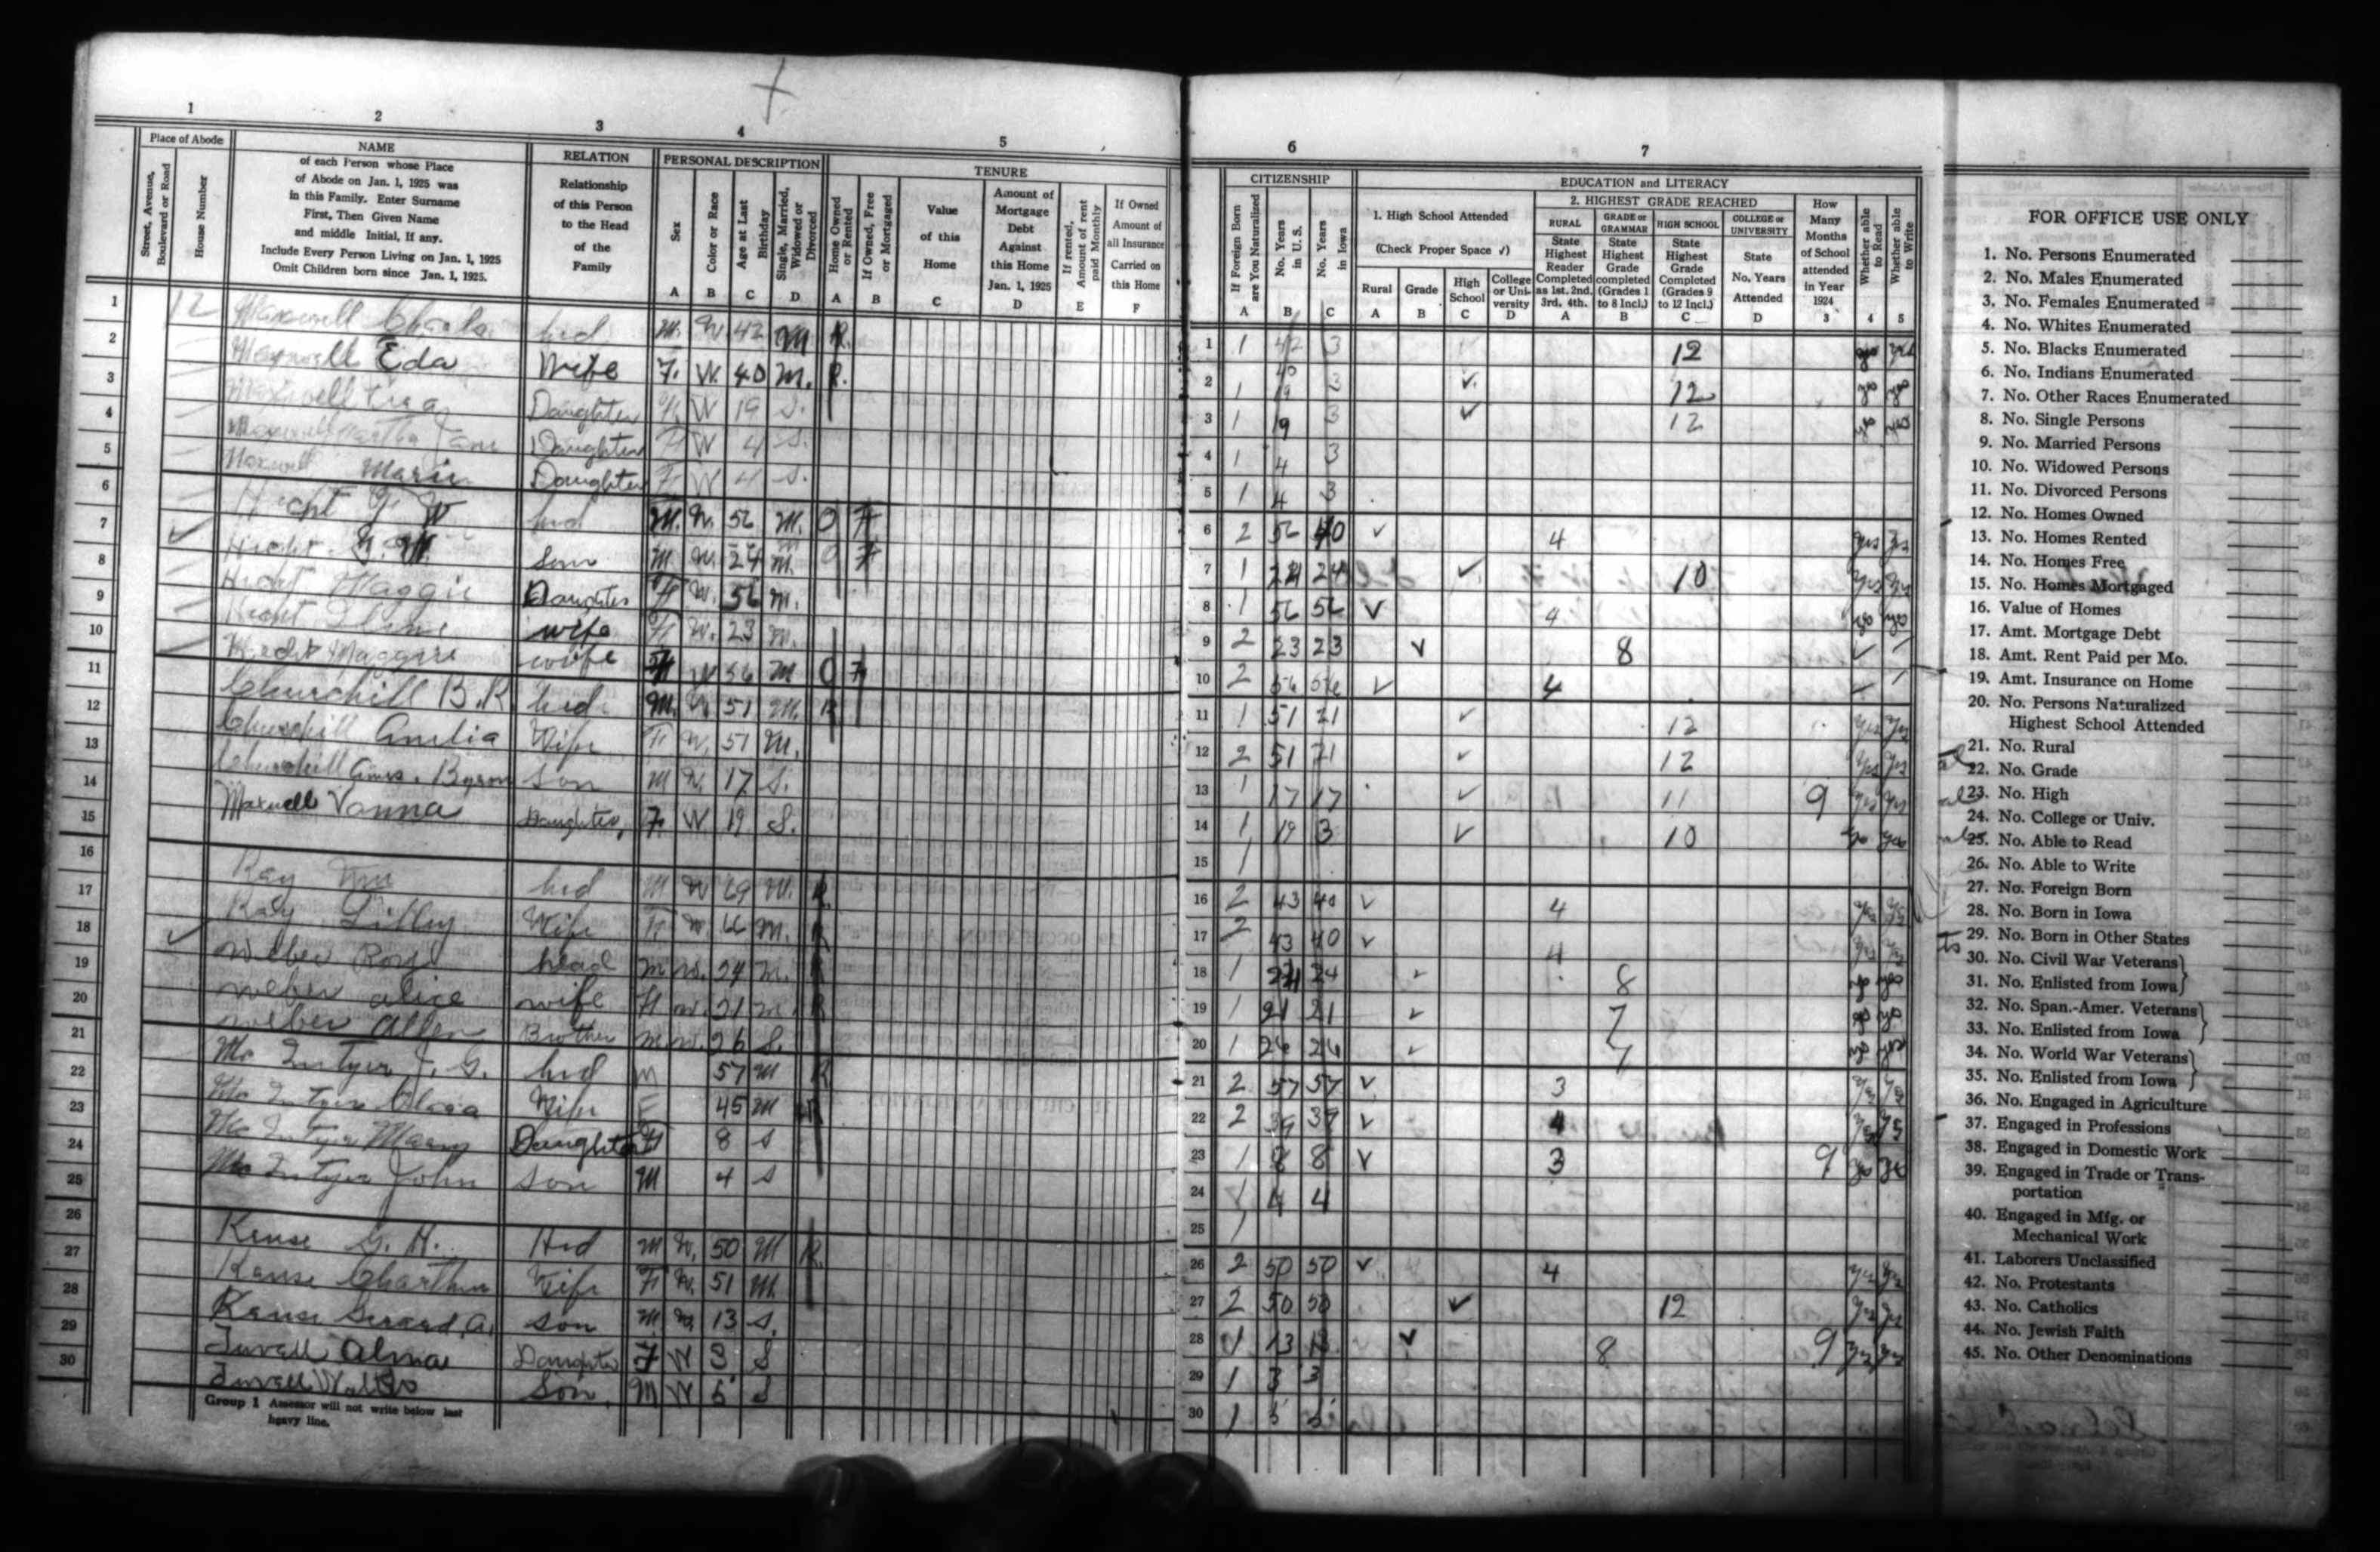 1 2 3 4 5
Place of Abode
Street, Avenue, Boulevard or Road
House Number
NAME
of each Person whose Place
of Abode on Jan. 1, 1925 was
in this Family. Enter Surname
First, Then Given Name
and middle Initial, If any.
Include Every Person Living on Jan. 1, 1925
Omit Children born since Jan. 1, 1925.
RELATION
Relationship
of this Person
to the Head
of the
Family
PERSONAL DESCRIPTION
Sex
Color or Race
Age at Last Birthday
Single, Married, Widowed or Divorced
A B C D
TENURE
Home Owned or Rented
If Owned, Free or Mortgaged
Value
of this
Home
Amount of
Mortgage
Debt
Against
this Home
Jan. 1, 1925
If rented, Amount of rent paid Monthly
If Owned
Amount of
all Insurance
Carried on
this Home
A B C D E F
1 12 Maxwell hed M. W 42 M R.
2 Maxwell Eda Wife F. W. 40 M. R.
3 Maxwell Daughter F. W 19 S.
4 Maxwell Martha Jane Daughter F W 4 S.
5 Maxwell Marie Daughter F W 4 S.
6 Hecht W hed M. W. 56 M. O F
7 Hecht M. son M. W. 24 M. O F
8 Hecht Maggie Daughter F W. 56 M.
9 Hecht wife F W. 23 M.
10 Hecht Maggie wife F W 56 M O F
11 Churchill B.R. hed M. W. 51 M. R
12 Churchill Amelia Wife F W. 51 M.
13 Churchill Byron son M W. 17 S.
14 Maxwell Vonna Daughter. F. W 19 S.
15
16 Ray Wm hed M W 69 M. R.
17 Ray Wife F. W. 66 M. R
18 Weber Roy head M W. 24 M. R
19 Weber Alice wife F W. 21 M. R
20 Weber Allen Brother M W. 26 S.
21 Mc Intyer J. G. hed M 57 M R
22 Mc Intyer Clara Wife F 45 M R
23 Mc Intyer Mary Daughter F 8 S
24 Mc Intyer John son M 4 S
25
26 Kruse G. H. Hed M W. 50 M R.
27 Kruse Wife F W. 51 M.
28 Kruse Gerard A. son M W. 13 S.
29 Alma Daughter F W 3 S
30 Son. M W 5 S
Group 1 Assessor will not write below last
heavy line.
6 7
CITIZENSHIP
If Foreign Born are You Naturalized
No. Years in U. S.
No. Years in Iowa
A B C
EDUCATION and LITERACY
1. High School Attended
(Check Proper Space √)
Rural Grade High School College or University
A B C D
2. HIGHEST GRADE REACHED
RURAL
State Highest Reader Completed as 1st. 2nd. 3rd. 4th.
GRADE or GRAMMAR
State Highest Grade completed (Grades 1 to 8 Incl.)
HIGH SCHOOL
State Highest Grade Completed (Grades 9 to 12 Incl.)
COLLEGE or UNIVERSITY
State No. Years Attended
A B C D
How Many Months of School attended in Year 1924
Whether able to Read
Whether able to Write
3 4 5
1 1 42 3 12 yes yes
2 1 40 3 √ 12 yes yes
3 1 19 3 √ 12 yes yes
4 1 4 3
5 1 4 3
6 2 56 40 √ 4 yes yes
7 1 24 24 √ 10 yes yes
8 1 56 56 √ 4 yes yes
9 2 23 23 √ 8 √ √
10 2 56 56 √ 4 √ √
11 1 51 21 √ 12 yes yes
12 2 51 21 √ 12 yes yes
13 1 17 17 √ 11 9 yes yes
14 1 19 3 √ 10 yes yes
15 1
16 2 43 40 √ 4 yes yes
17 2 43 40 √ 4 yes yes
18 1 24 24 √ 8 yes yes
19 1 21 21 √ 7 yes yes
20 1 26 26 √ 7 yes yes
21 2 57 57 √ 3 yes yes
22 2 39 39 √ 4 yes yes
23 1 8 8 √ 3 9 yes yes
24 1 4 4
25 1
26 2 50 50 √ 4 yes yes
27 2 50 50 √ 12 yes yes
28 1 13 13 √ 8 9 yes yes
29 1 3 3
30 1 5 5
FOR OFFICE USE ONLY
1. No. Persons Enumerated
2. No. Males Enumerated
3. No. Females Enumerated
4. No. Whites Enumerated
5. No. Blacks Enumerated
6. No. Indians Enumerated
7. No. Other Races Enumerated
8. No. Single Persons
9. No. Married Persons
10. No. Widowed Persons
11. No. Divorced Persons
12. No. Homes Owned
13. No. Homes Rented
14. No. Homes Free
15. No. Homes Mortgaged
16. Value of Homes
17. Amt. Mortgage Debt
18. Amt. Rent Paid per Mo.
19. Amt. Insurance on Home
20. No. Persons Naturalized
Highest School Attended
21. No. Rural
22. No. Grade
23. No. High
24. No. College or Univ.
25. No. Able to Read
26. No. Able to Write
27. No. Foreign Born
28. No. Born in Iowa
29. No. Born in Other States
30. No. Civil War Veterans
31. No. Enlisted from Iowa
32. No. Span.-Amer. Veterans
33. No. Enlisted from Iowa
34. No. World War Veterans
35. No. Enlisted from Iowa
36. No. Engaged in Agriculture
37. Engaged in Professions
38. Engaged in Domestic Work
39. Engaged in Trade or Trans-
portation
40. Engaged in Mfg. or
Mechanical Work
41. Laborers Unclassified
42. No. Protestants
43. No. Catholics
44. No. Jewish Faith
45. No. Other Denominations